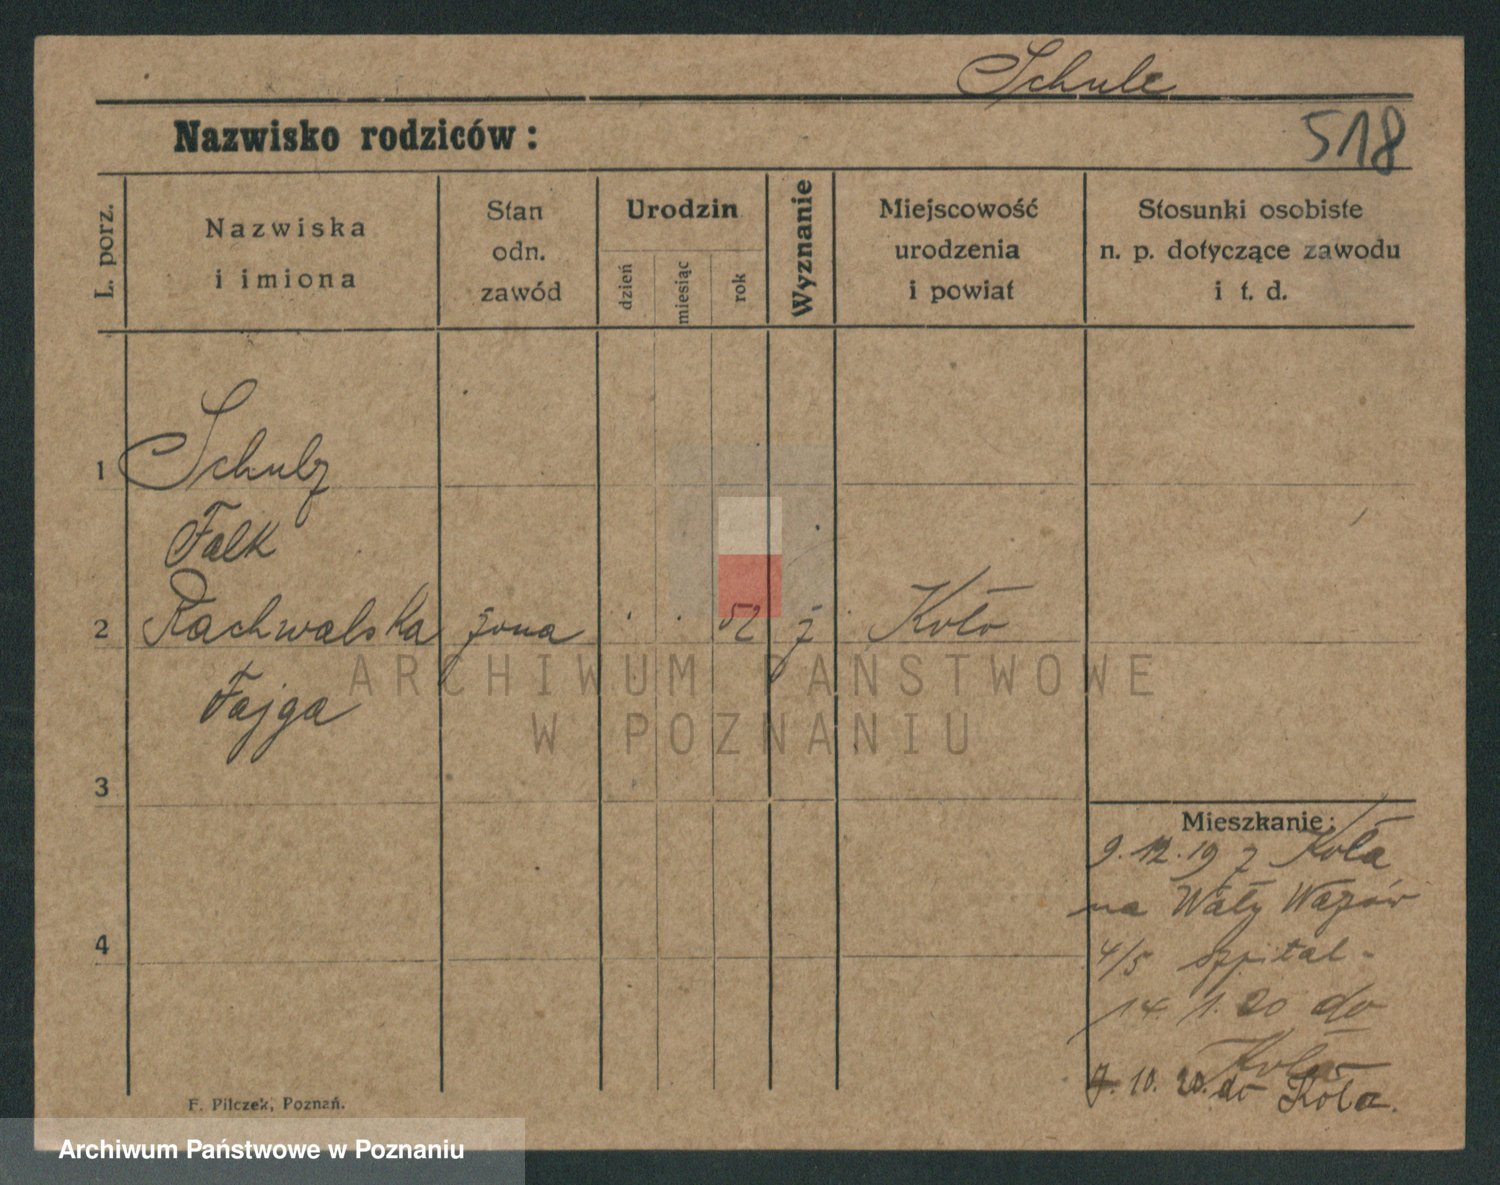 Schulc
Nazwisko rodziców:
518
L. porz.
Nazwiska
i imiona
Stan
odn.
zawód
Urodzin
dzień
miesiąc
rok
Wyznanie
Miejscowość
urodzenia
i powiat
Stosunki osobiste
n. p. dotyczące zawodu
i t. d.
1 Schulz
Falk
2 Rachwalska żona . . 52 ż Koło
Fajga
ARCHIWUM PAŃSTWOWE
W POZNANIU
3
Mieszkanie:
9.12.19 z Koła
na Wały Wazów
4/5 szpital -
14.1.20 do
Koła
4
7.10.20. do Koła.
F. Pilczek, Poznań.
Archiwum Państwowe w Poznaniu